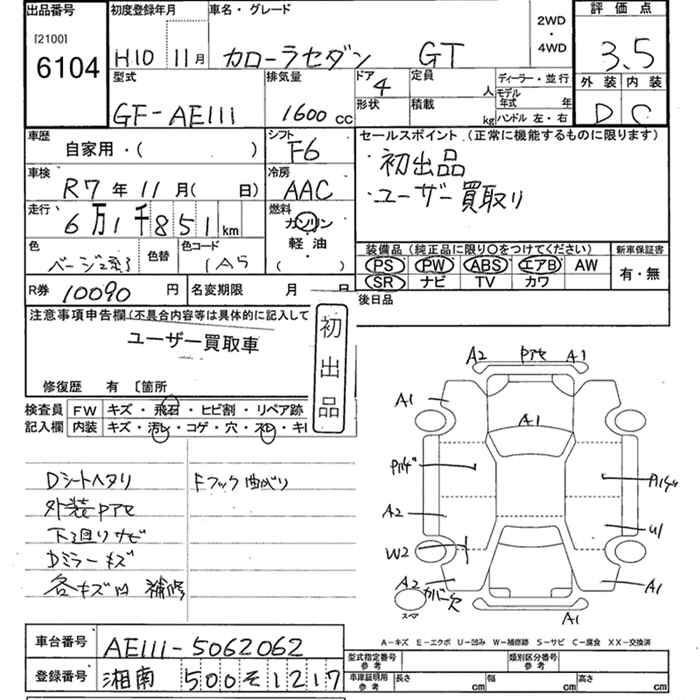 出品番号 初度登録年月 車名・グレード 2WD・4WD 評価点
[2100]
6104 H10 11月 カローラセダン GT 3.5
型式 排気量 ドア 定員 人 ディーラー・並行 外装 内装
GF-AE111 1600cc 4 形状 積載 kg モデル年式 年 D C
ハンドル 左・右
車歴 シフト セールスポイント (正常に機能するものに限ります)
自家用・( ) F6 初出品
車検 冷房
R7年11月( 日) AAC ユーザー買取り
走行 燃料
6万1千851km ガソリン
軽油
( )
色 色替 色コード 装備品(純正品に限り○をつけてください) 新車保証書
ベージュ2 1A5 PS PW ABS エアB AW 有・無
SR ナビ TV カワ
R券 10090円 名変期限 月 日 後日品
注意事項申告欄(不具合内容等は具体的に記入して
ユーザー買取車
初出品
修復歴 有 〔箇所
検査員 FW キズ・飛石・ヒビ割・リペア跡
記入欄 内装 キズ・汚レ・コゲ・穴・スレ・キレ
Dシートヘタリ Fフック曲がり
外装Pアセ
下廻りサビ
Dミラーキズ
各キズ凹 補修
A2 Pアセ A1
A1 A1
P14" P14"
A2
U1
W2
A2 カバー欠 A1
スマ A1
A-キズ E-エクボ U-凹み W-補修跡 S-サビ C-腐食 XX-交換済
車台番号 AE111-5062062
登録番号 湘南 500 そ 1217
型式指定番号 参考 類別区分番号 参考
車庫証明用 参考 長さ cm 幅 cm 高さ cm